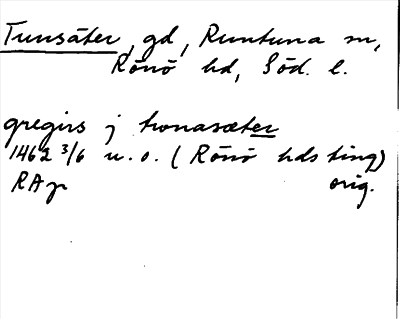 Tunsäter, gd, Runtuna sn,
Rönö hd, Söd. l.
gregirs j tronasæter
1462 3/6 u. o. (Rönö hds ting)
RAp orig.